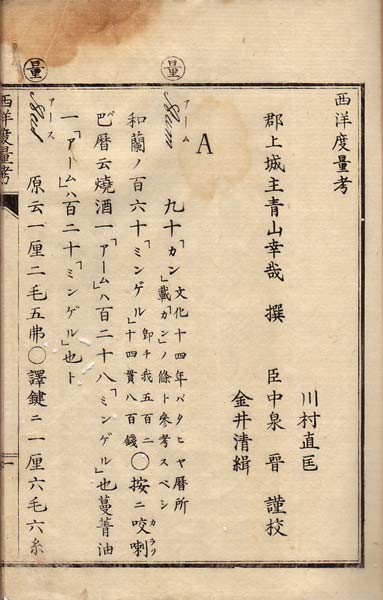 西洋度量考
川村直匡
郡上城主青山幸哉 撰 臣中泉 晉 謹校
金井清緝
A
量
アーム
Aam 九十「カン」文化十四年バタヒヤ暦所
載「カン」ノ條ト參考スベシ
和蘭ノ百六十「ミンゲル」即チ我五百二
十四貫八百錢〇按ニ咬喇
巴暦云燒酒一「アーム」ハ百二十八「ミンゲル」也蔓菁油
一「アーム」ハ百二十「ミンゲル」也ト
量
アース
Aas 原云一厘二毛五弗〇譯鍵ニ一厘六毛六糸
西洋度量考
一